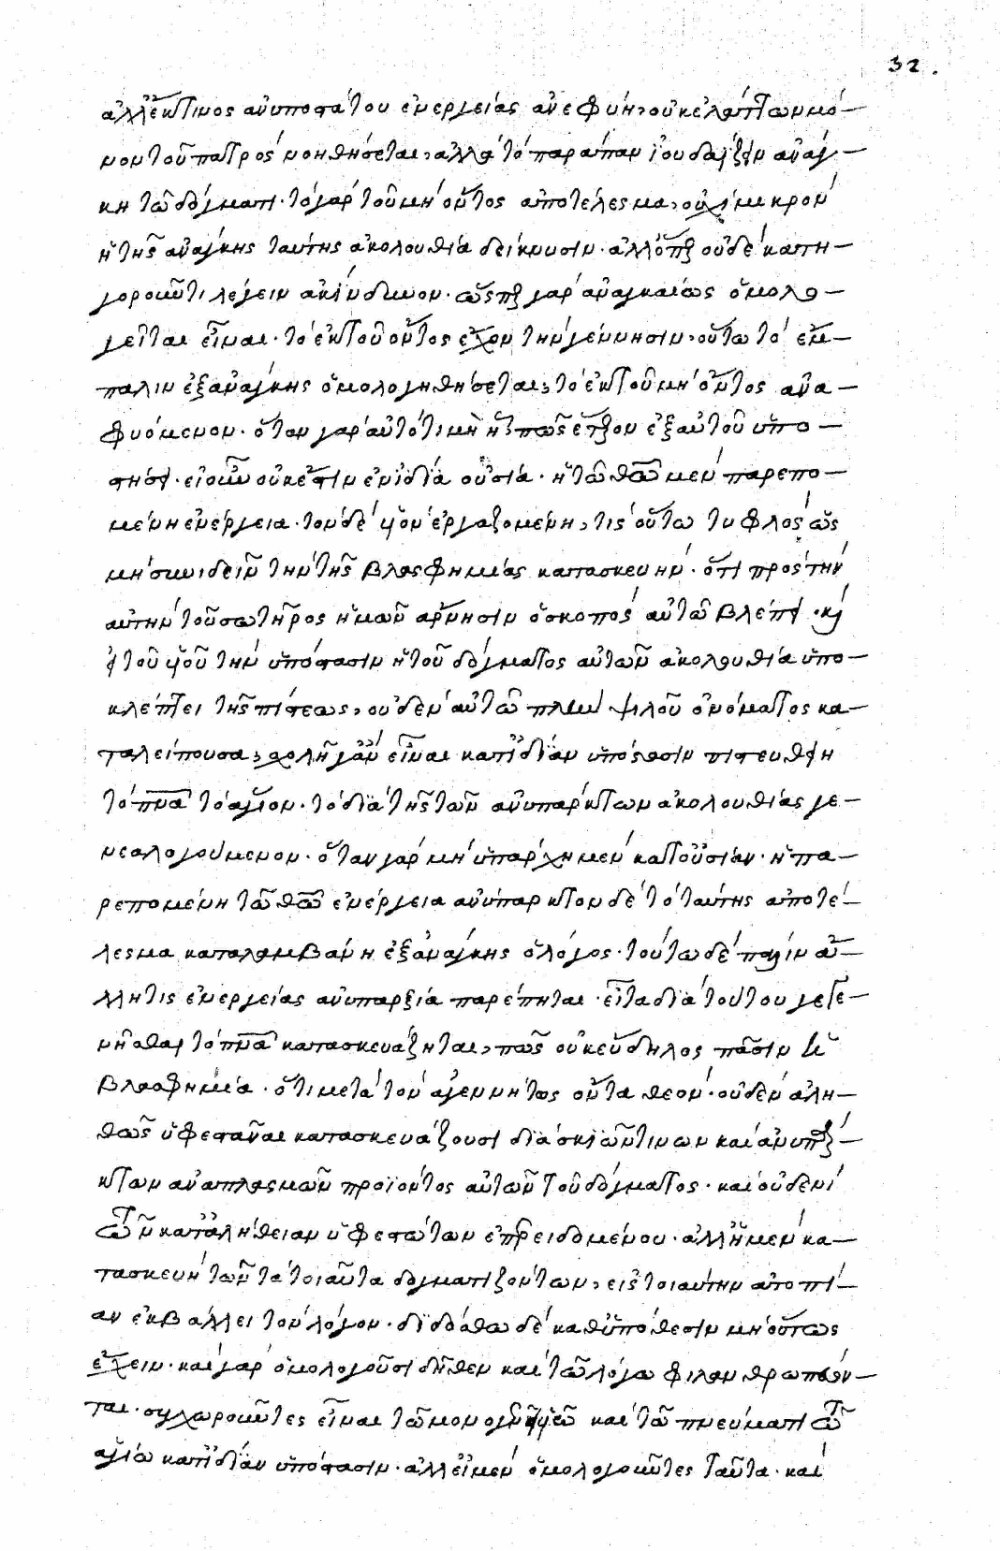 32.
ἀλλ' ἔκ τινος ἀνυποστάτου ἐνεργείας ἀνεφύη, οὐκ ἐλάττων μό-
νον τοῦ πατρὸς νοηθήσεται, ἀλλὰ τὸ παράπαν ἰουδαΐζειν ἀνάγ-
κη τῷ δόγματι· τὸ γὰρ τοῦ μὴ ὄντος ἀποτέλεσμα, οὐχὶ μικρὸν
ἡ τῆς ἀνάγκης ταύτης ἀκολουθία δείκνυσιν· ἀλλ' ὅπερ οὐδὲ κατη-
γοροῦντι λέγειν ἀκίνδυνον· ὥσπερ γὰρ ἀναγκαίως ὁμολο-
γεῖται εἶναι· τὸ ἐκ τοῦ ὄντος ἔχον τὴν γέννησιν, οὕτω τὸ ἔμ-
παλιν ἐξ ἀνάγκης ὁμολογηθήσεται, τὸ ἐκ τοῦ μὴ ὄντος ἀνα-
φυόμενον· ὅταν γὰρ αὐτό τι μὴ ᾖ, πῶς ἕτερον ἐξ αὐτοῦ ὑπο-
στήσει· εἰ οὖν οὐκ ἔστιν ἐν ἰδίᾳ οὐσίᾳ· ἡ τῷ θεῷ μὲν παρεπο-
μένη ἐνέργεια· τὸν δὲ υἱὸν ἐργαζομένη, τίς οὕτω τυφλὸς ὡς
μὴ συνιδεῖν τὴν τῆς βλασφημίας κατασκευήν· ὅτι πρὸς τὴν
αὐτὴν τοῦ σωτῆρος ἡμῶν ἄρνησιν ὁ σκοπὸς αὐτῷ βλέπει· καὶ
εἰ τοῦ υἱοῦ τὴν ὑπόστασιν ἡ τοῦ δόγματος αὐτῶν ἀκολουθία ὑπο-
κλέπτει τῆς πίστεως, οὐδὲν αὐτῷ πλὴν ψιλοῦ ὀνόματος κα-
ταλείπουσα, σχολῇ γ' ἂν εἶναι κατ' ἰδίαν ὑπόστασιν πιστευθείη
τὸ πνα τὸ ἅγιον· τὸ διὰ τῆς τῶν ἀνυπάρκτων ἀκολουθίας γε-
νεαλογούμενον· ὅταν γὰρ μὴ ὑπάρχῃ μὲν κατ' οὐσίαν· ἡ πα-
ρεπομένη τῷ θῶ ἐνέργεια ἀνύπαρκτον δὲ τὸ ταύτης ἀποτέ-
λεσμα καταλαμβάνῃ ἐξ ἀνάγκης ὁ λόγος· τούτῳ δὲ πάλιν ἄλ-
λη τις ἐνεργείας ἀνυπαρξία παρέπηται· εἶτα διὰ τούτου γεγε-
νῆσθαι τὸ πνα κατασκευάζηται, πῶς οὐκ εὔδηλος πᾶσιν ἡ
βλασφημία· ὅτι μετὰ τὸν ἀγεννήτως ὄντα θεὸν· οὐδὲν ἀλη-
θῶς ὑφεστάναι κατασκευάζουσι διὰ σκιῶν τινων καὶ ἀνυπάρ-
κτων ἀναπλασμῶν προϊόντος αὐτῶν τοῦ δόγματος· καὶ οὐδενὶ
τῶν κατ' ἀλήθειαν ὑφεστώτων ἐπερειδομένου· ἀλλ' ἡ μὲν κα-
τασκευὴ τῶν τὰ τοιαῦτα δογματιζόντων, εἰς τοιαύτην ἀτοπί-
αν ἐκβάλλει τὸν λόγον· δεδόσθω δὲ καθ' ὑπόθεσιν μὴ οὕτως
ἔχειν· καὶ γὰρ ὁμολογοῦσι δῆθεν καὶ τῷ λόγῳ φιλανθρωπεύον-
ται· συγχωροῦντες εἶναι τῷ μονογενεῖ υἱῷ καὶ τῷ πνεύματι τῷ
ἁγίῳ κατ' ἰδίαν ὑπόστασιν· ἀλλ' εἰ μὲν ὁμολογοῦντες ταῦτα· καὶ